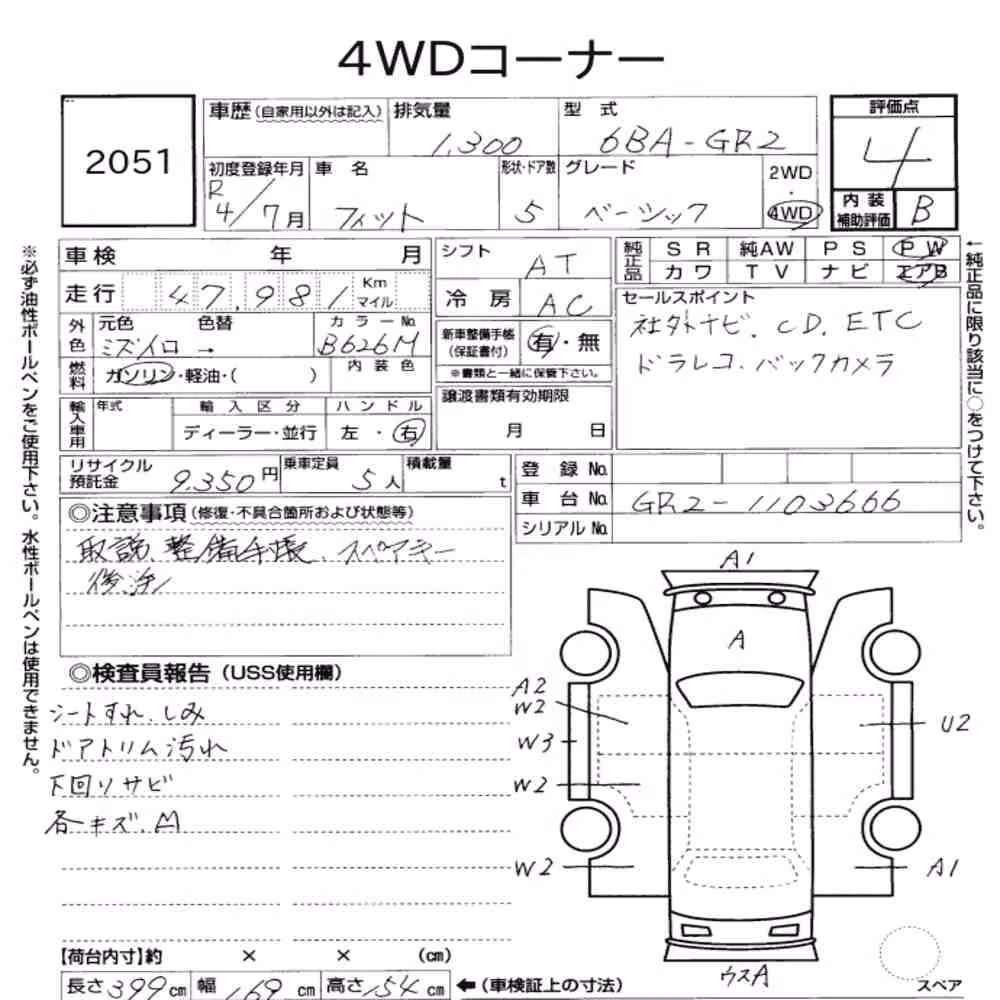 4WDコーナー
2051
車歴(自家用以外は記入) 排気量 1,300 型式 6BA-GR2
評価点 4
初度登録年月 R4/7月 車名 フィット 形状・ドア数 5 グレード ベーシック 2WD・4WD
内装補助評価 B
車検 年 月
走行 47,981 Km マイル
外色 元色 ミズイロ → 色替 カラーNo. B626M
内装色
燃料 ガソリン・軽油・( )
輸入車用 年式 輸入区分 ディーラー・並行 ハンドル 左・右
シフト AT
冷房 AC
新車整備手帳(保証書付) 有・無
※書類と一緒に保管下さい。
譲渡書類有効期限
月 日
純正品 SR 純AW PS PW
カワ TV ナビ エアB
セールスポイント
社外ナビ. CD. ETC
ドラレコ. バックカメラ
リサイクル預託金 9,350円 乗車定員 5人 積載量 t
登録No.
車台No. GR2-1103666
シリアルNo.
◎注意事項(修復・不具合箇所および状態等)
取説、整備手帳、スペアキー
後渡し
◎検査員報告(USS使用欄)
シートすれ、しみ
ドアトリム汚れ
下回りサビ
各キズ.凹
A1
A
A2
W2
W3
W2
W2
U2
A1
ウスA
スペア
【荷台内寸】約 × × (cm)
長さ399cm 幅169cm 高さ154cm ←(車検証上の寸法)
※必ず油性ボールペンをご使用下さい。水性ボールペンは使用できません。
←純正品に限り該当に○をつけて下さい。